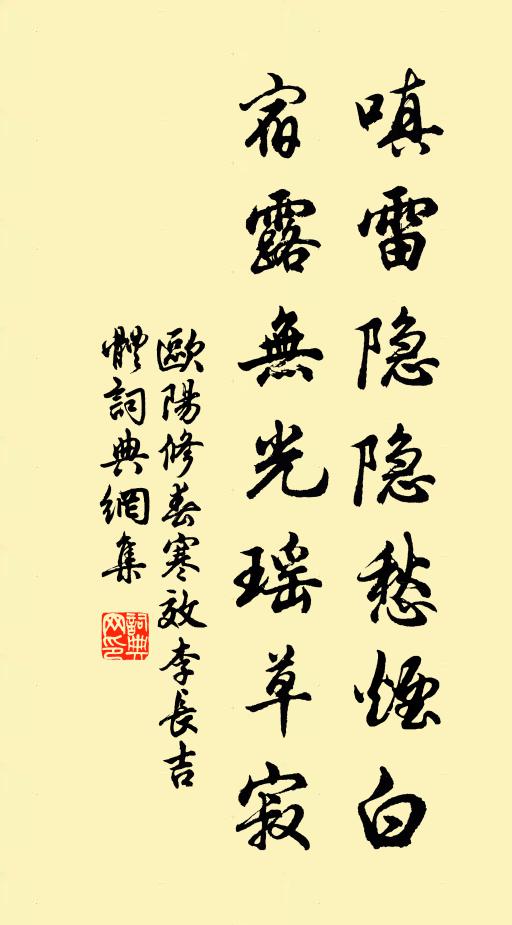 嗔雷隐隐愁煙白
宿露無光瑶草寂
歐陽修春寒效李長吉
體詞典網集
詞典网印